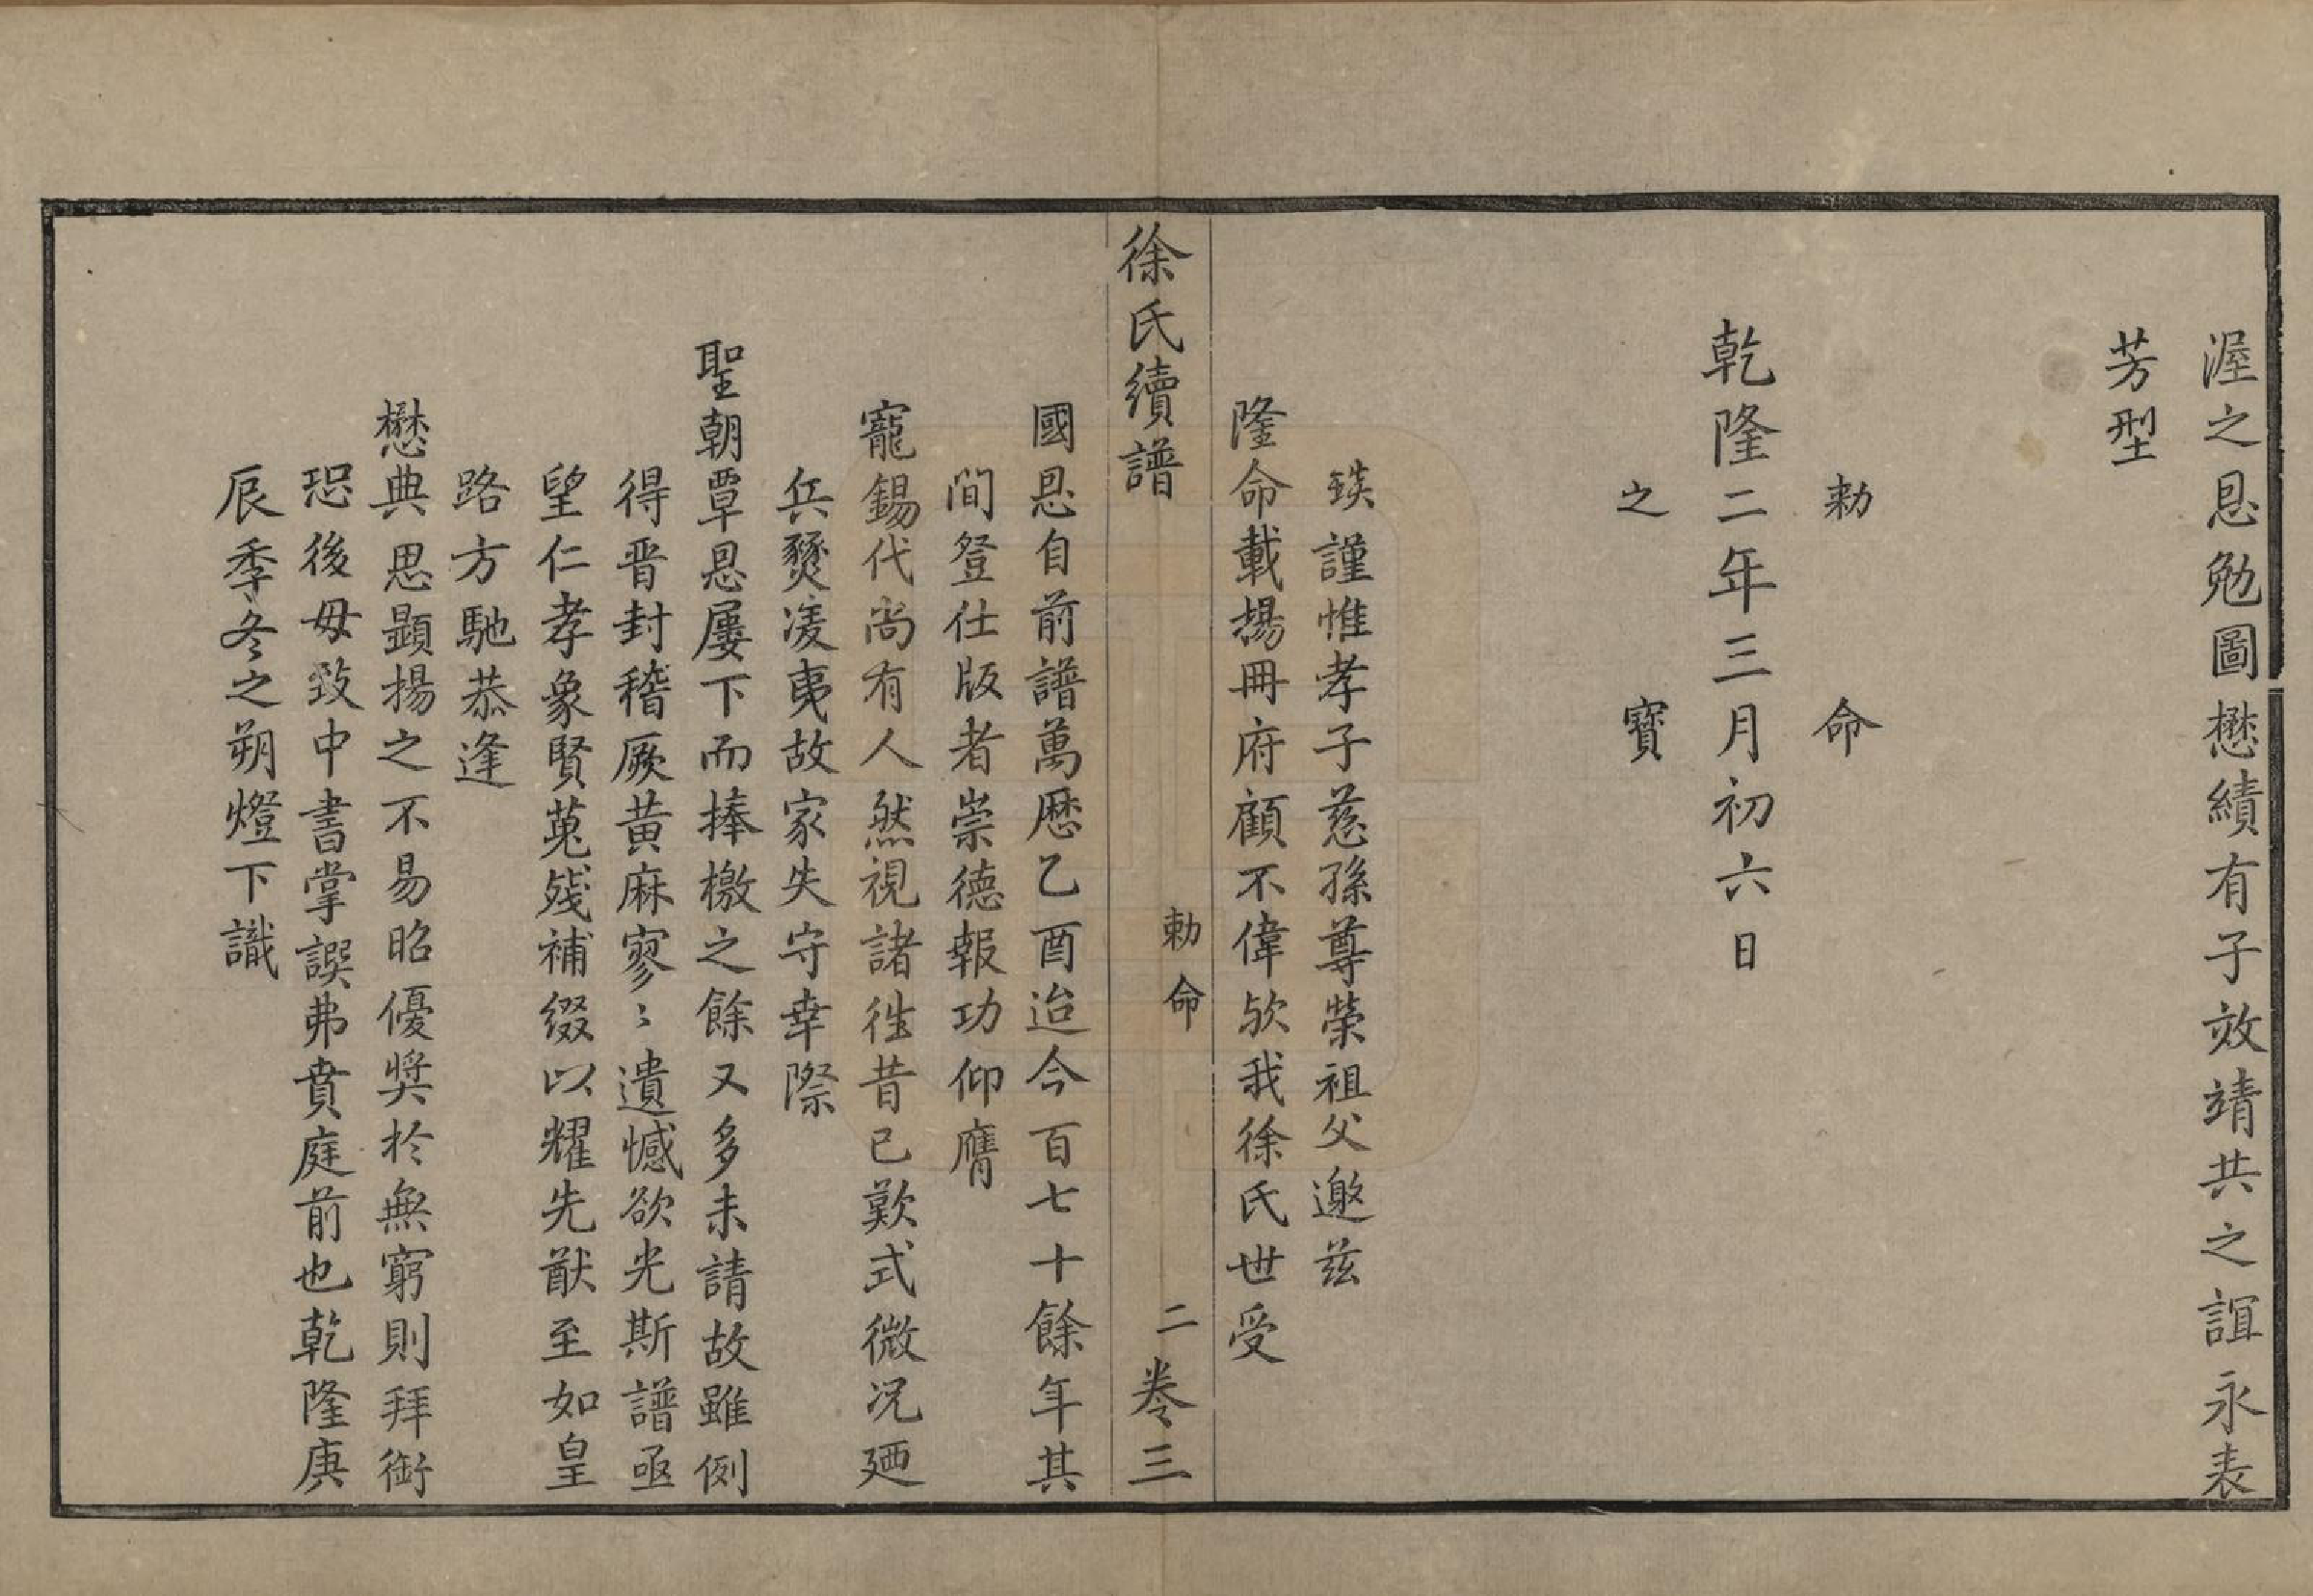 渥之恩勉圖懋績有子效靖共之誼永表
芳型
敕命
乾隆二年三月初六日
之寶
琰謹惟孝子慈孫尊榮祖父邀茲
隆命載揚冊府顧不偉歟我徐氏世受
徐氏續譜 勅命 二 卷三
國恩自前譜萬曆乙酉迨今百七十餘年其
間登仕版者崇德報功仰膺
寵錫代尚有人然視諸徃昔已歎式微况廼
兵燹凌夷故家失守幸際
聖朝覃恩屢下而捧檄之餘又多未請故雖例
得晋封稽厥黃麻寥〻遺憾欲光斯譜亟
望仁孝象賢蒐残補缀以耀先猷至如皇
路方馳恭逢
懋典思顯揚之不易昭優奬於無窮則拜銜
恩後毋致中書掌誤弗賁庭前也乾隆庚
辰季冬之朔燈下識